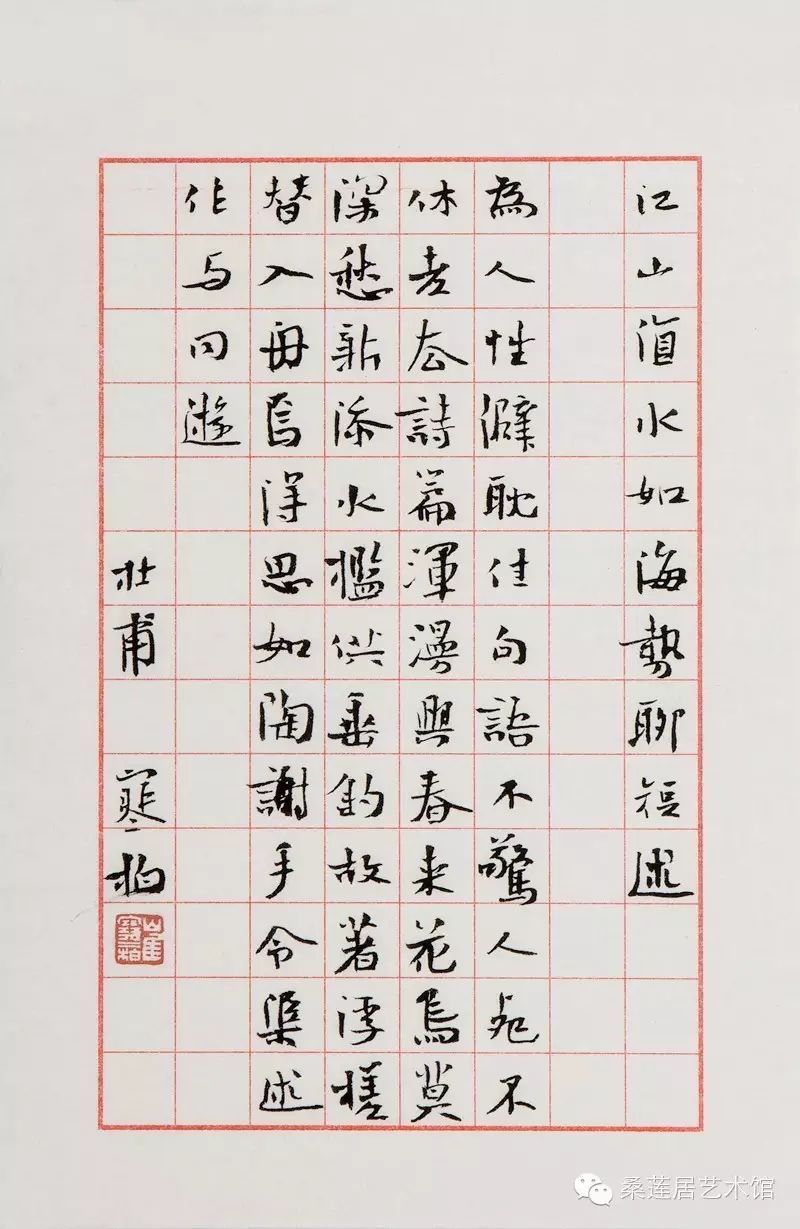 江上值水如海勢聊短述
為人性僻耽佳句語不驚人死不
休老去詩篇渾漫興春来花鳥莫
深愁新添水檻供垂釣故著浮槎
替入舟焉得思如陶謝手令渠述
作与同遊
杜甫 寒柏
崔寒柏
桑莲居艺术馆